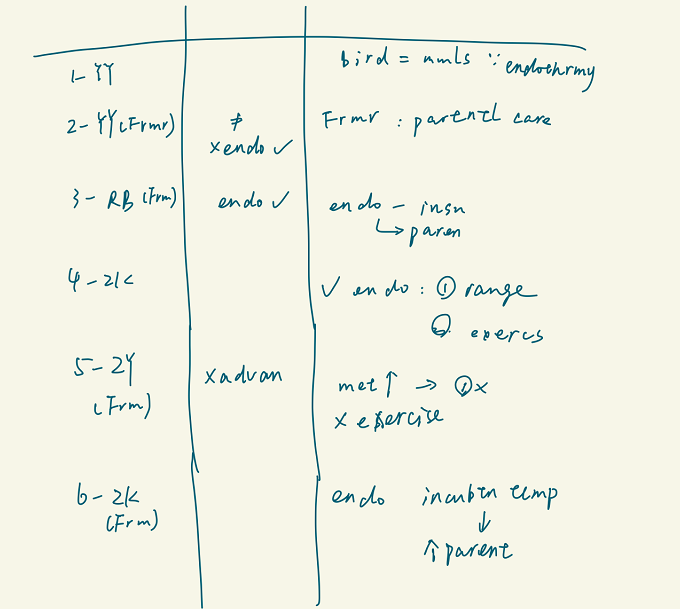 bird = nmls ∵ endothrmy
1- YY
2- YY (Frmr) ≠ Frmr : parentl care
x endo ✓
3 - RB (Frm) endo ✓ endo - insn
↳ paren
4 - 2K ✓ endo : ① range
② exercs
5 - 2Y x advan met ↑ → ① x
(Frm) x exercise
6 - 2K endo incubtn temp
(Frm) ↓
↑ parent